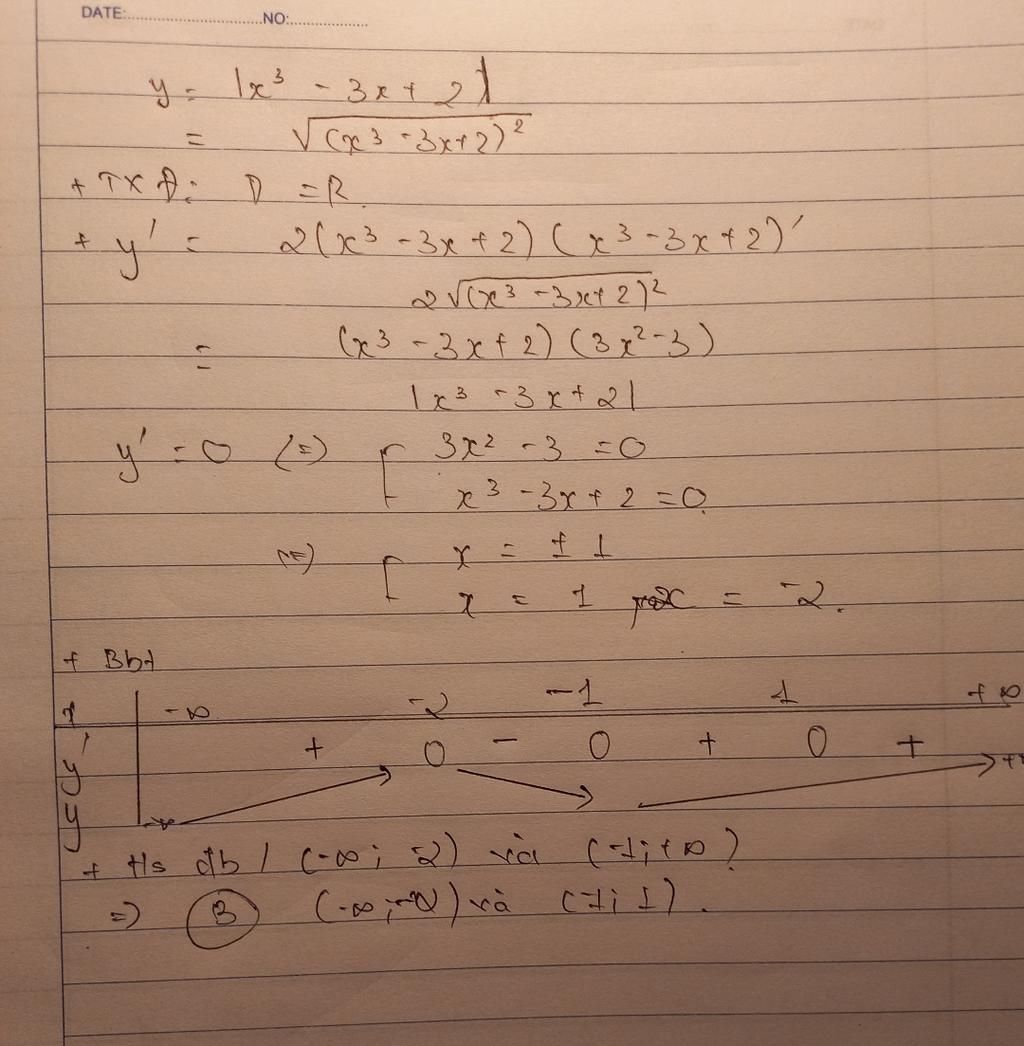 DATE:........................NO:................
y = |x³ - 3x + 2|
= √(x³ - 3x + 2)²
+ TXĐ: D = R.
+ y' = 2(x³ - 3x + 2) (x³ - 3x + 2)'
2√(x³ - 3x + 2)²
= (x³ - 3x + 2) (3x² - 3)
|x³ - 3x + 2|
y' = 0 (=) [ 3x² - 3 = 0
x³ - 3x + 2 = 0.
(=) [ x = ± 1
x = 1 x = -2.
+ Bbt
x -∞ -2 -1 1 +∞
y' + 0 - 0 + 0 +
y
+ Hs đb / (-∞; 2) và (-1; +∞)
=) B (-∞; -2) và (-1; 1).